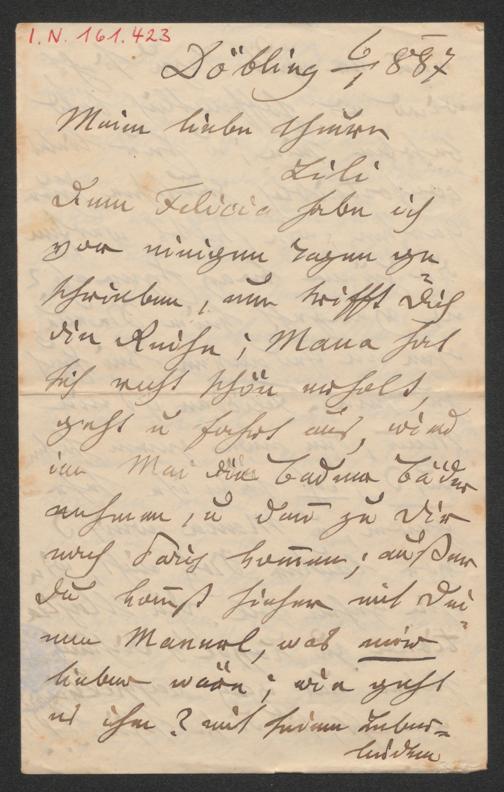 I. N. 161.423
Döbling 6/1 887
Meine liebe theure
Lili
Deiner Felicia habe ich
vor einigen Tagen ge
schrieben, nun trifft Dich
die Reihe; Mama hat
sich recht schön erholt,
geht u fahrt aus, wird
im Mai die Badner Bäder
nehmen, u dann zu Dir
nach Paris kommen; außer
Du komst hieher mit Dei
nem Manne, was mir
lieber wäre; wie geht
es ihm? mit seinem Leber-
leiden